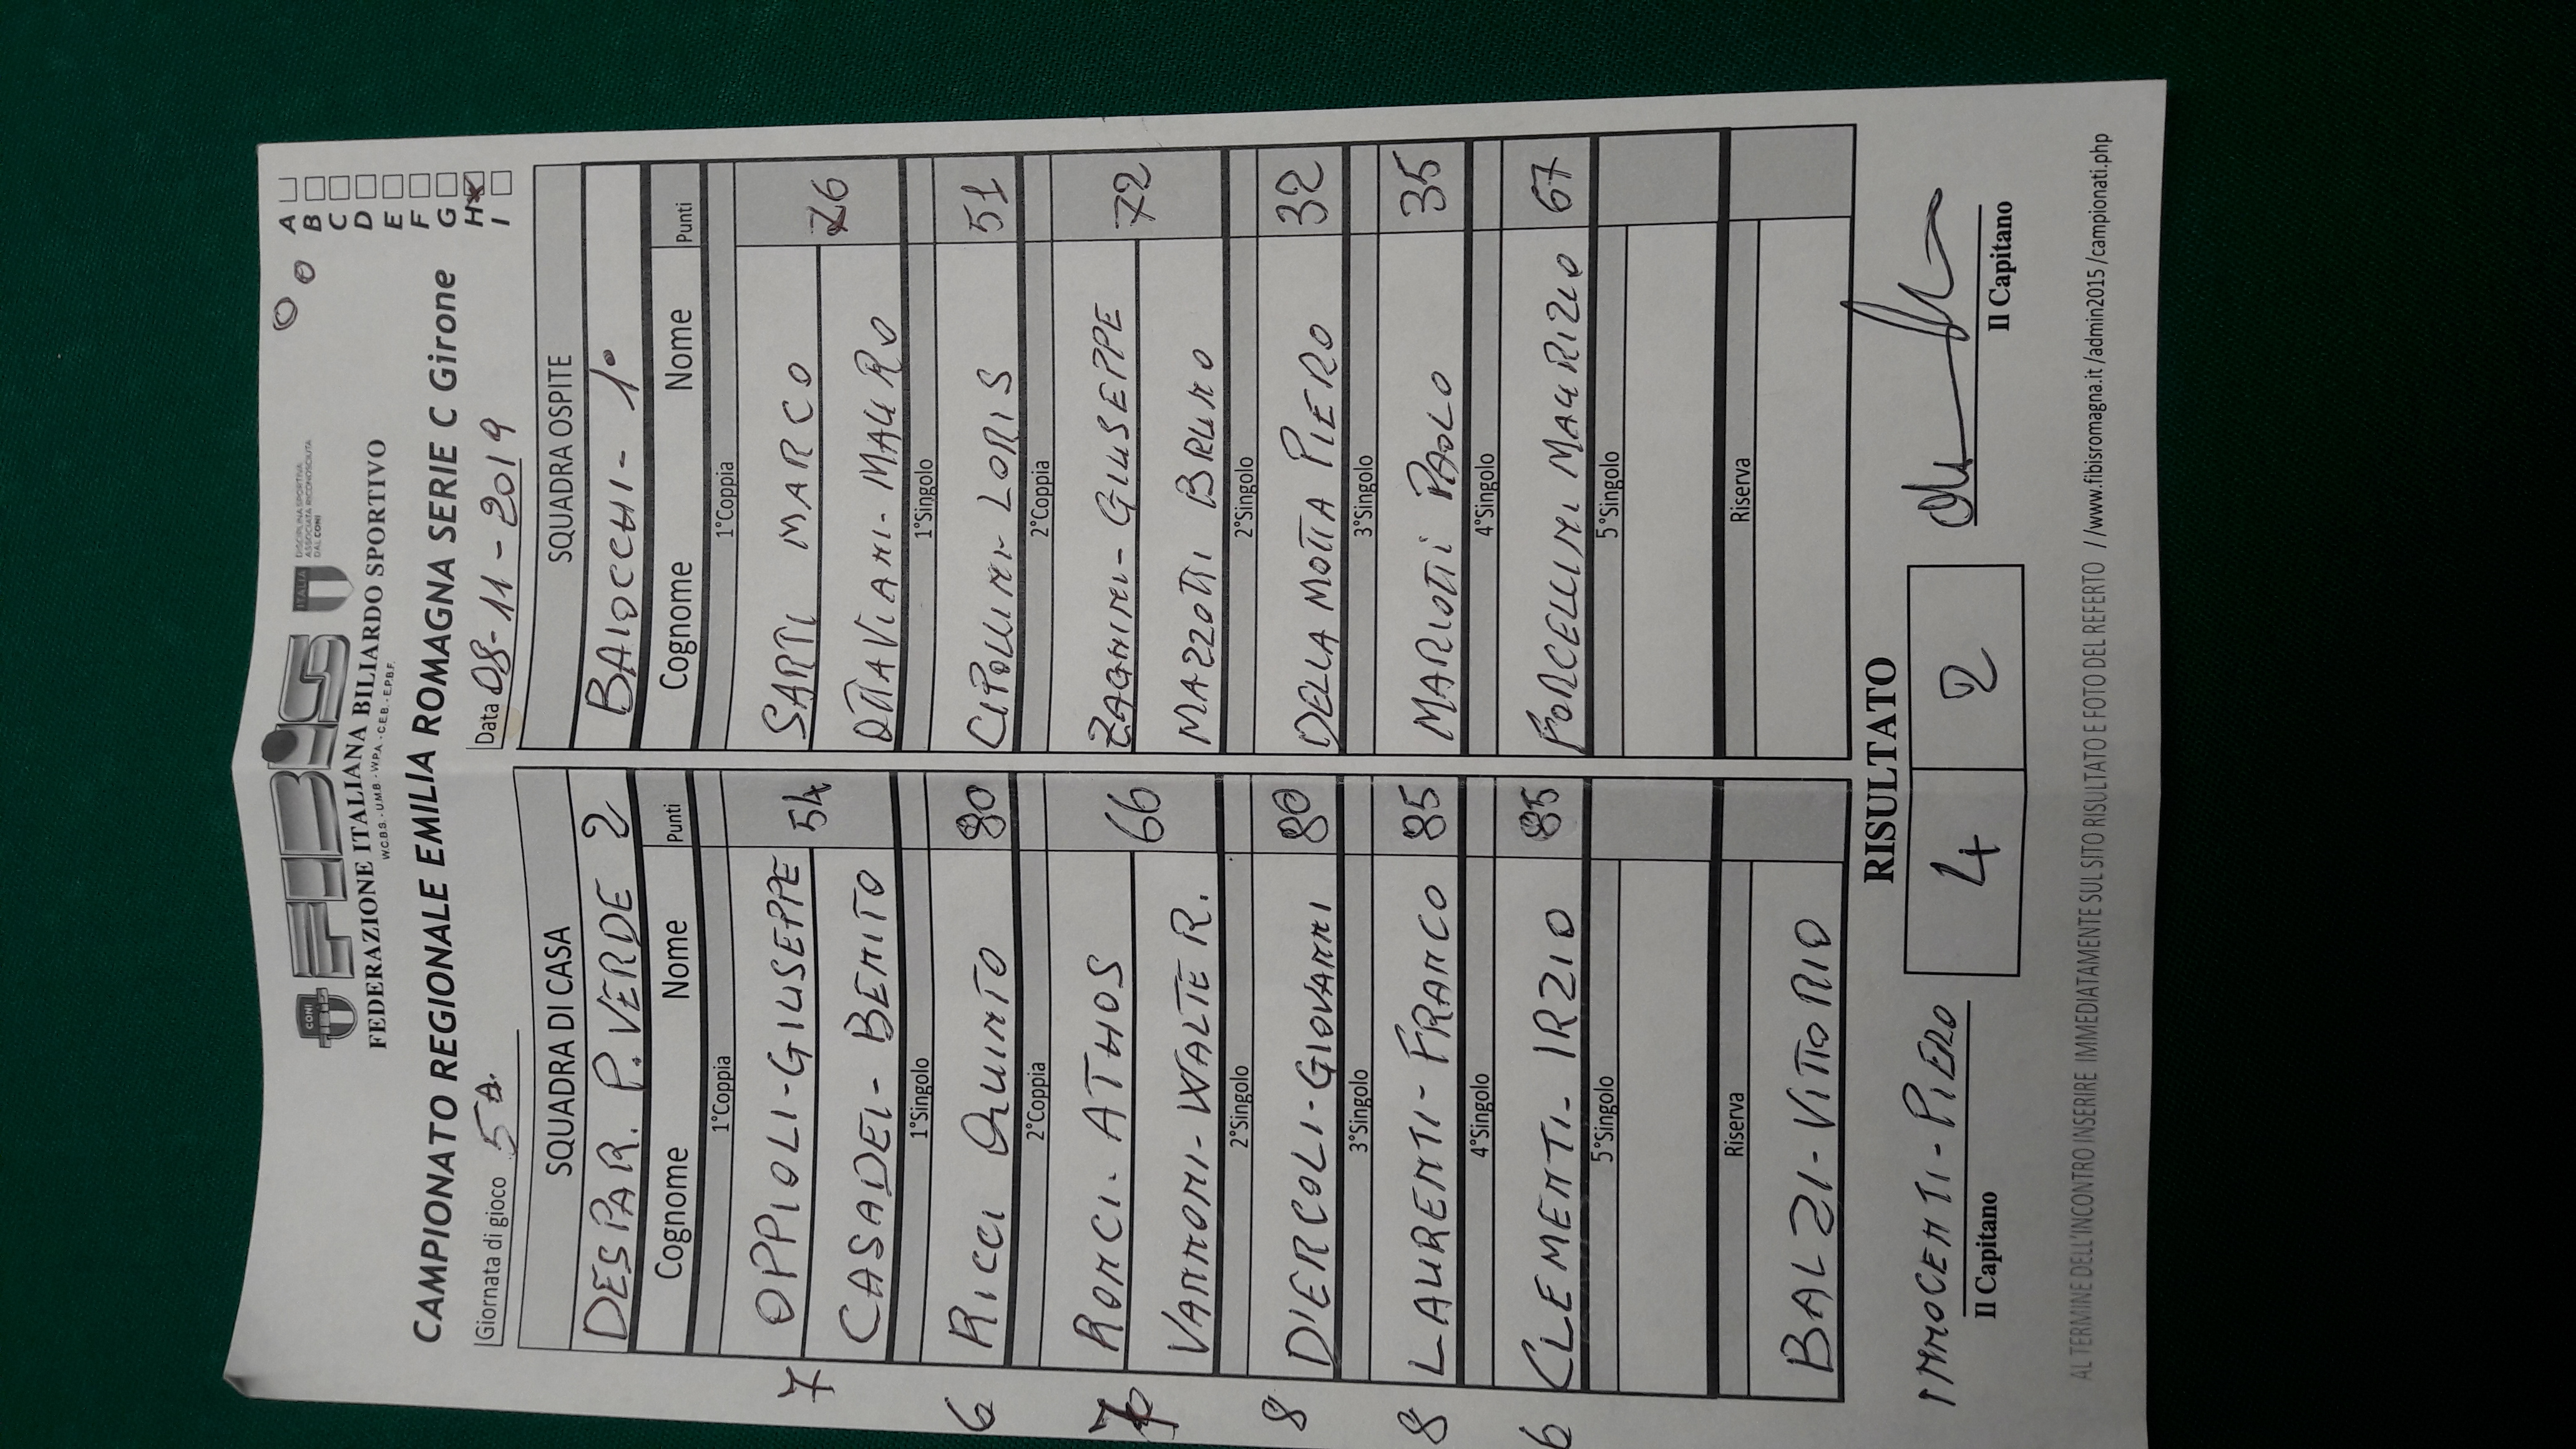 FIBiS
CONI
ITALIA
DISCIPLINA SPORTIVA
ASSOCIATA RICONOSCIUTA
DAL CONI
FEDERAZIONE ITALIANA BILIARDO SPORTIVO
W.C.B.S. - U.M.B. - W.P.A. - C.E.B. - E.P.B.F.
CAMPIONATO REGIONALE EMILIA ROMAGNA SERIE C Girone
A
B
C
D
E
F
G
H
I
Giornata di gioco 5A.
Data 08-11-2019
SQUADRA DI CASA
DESPAR. P. VERDE 2
Cognome Nome Punti
1°Coppia
OPPIOLI-GIUSEPPE 54
CASADEI-BENITO
1°Singolo
RICCI QUINTO 80
2°Coppia
RONCI-ATHOS 66
VANNONI-WALTER.
2°Singolo
D'ERCOLI-GIOVANNI 80
3°Singolo
LAURENTI-FRANCO 85
4°Singolo
CLEMENTI-IRZIO 85
5°Singolo
Riserva
BALZI-VITTORIO
7
6
7
8
8
6
SQUADRA OSPITE
BAIOCCHI-1°
Cognome Nome Punti
1°Coppia
SARTI MARCO 76
OTTAVIANI-MAURO
1°Singolo
CIPOLLINI-LORIS 51
2°Coppia
ZAGNINI-GIUSEPPE 72
MAZZOTTI BRUNO
2°Singolo
DELLA MOTTA PIERO 32
3°Singolo
MARIOTTI PAOLO 35
4°Singolo
PORCELLINI MAURIZIO 67
5°Singolo
Riserva
RISULTATO
4 2
INNOCENTI-PIERO
Il Capitano
Il Capitano
AL TERMINE DELL'INCONTRO INSERIRE IMMEDIATAMENTE SUL SITO RISULTATO E FOTO DEL REFERTO //www.fibisromagna.it /admin2015 /campionati.php